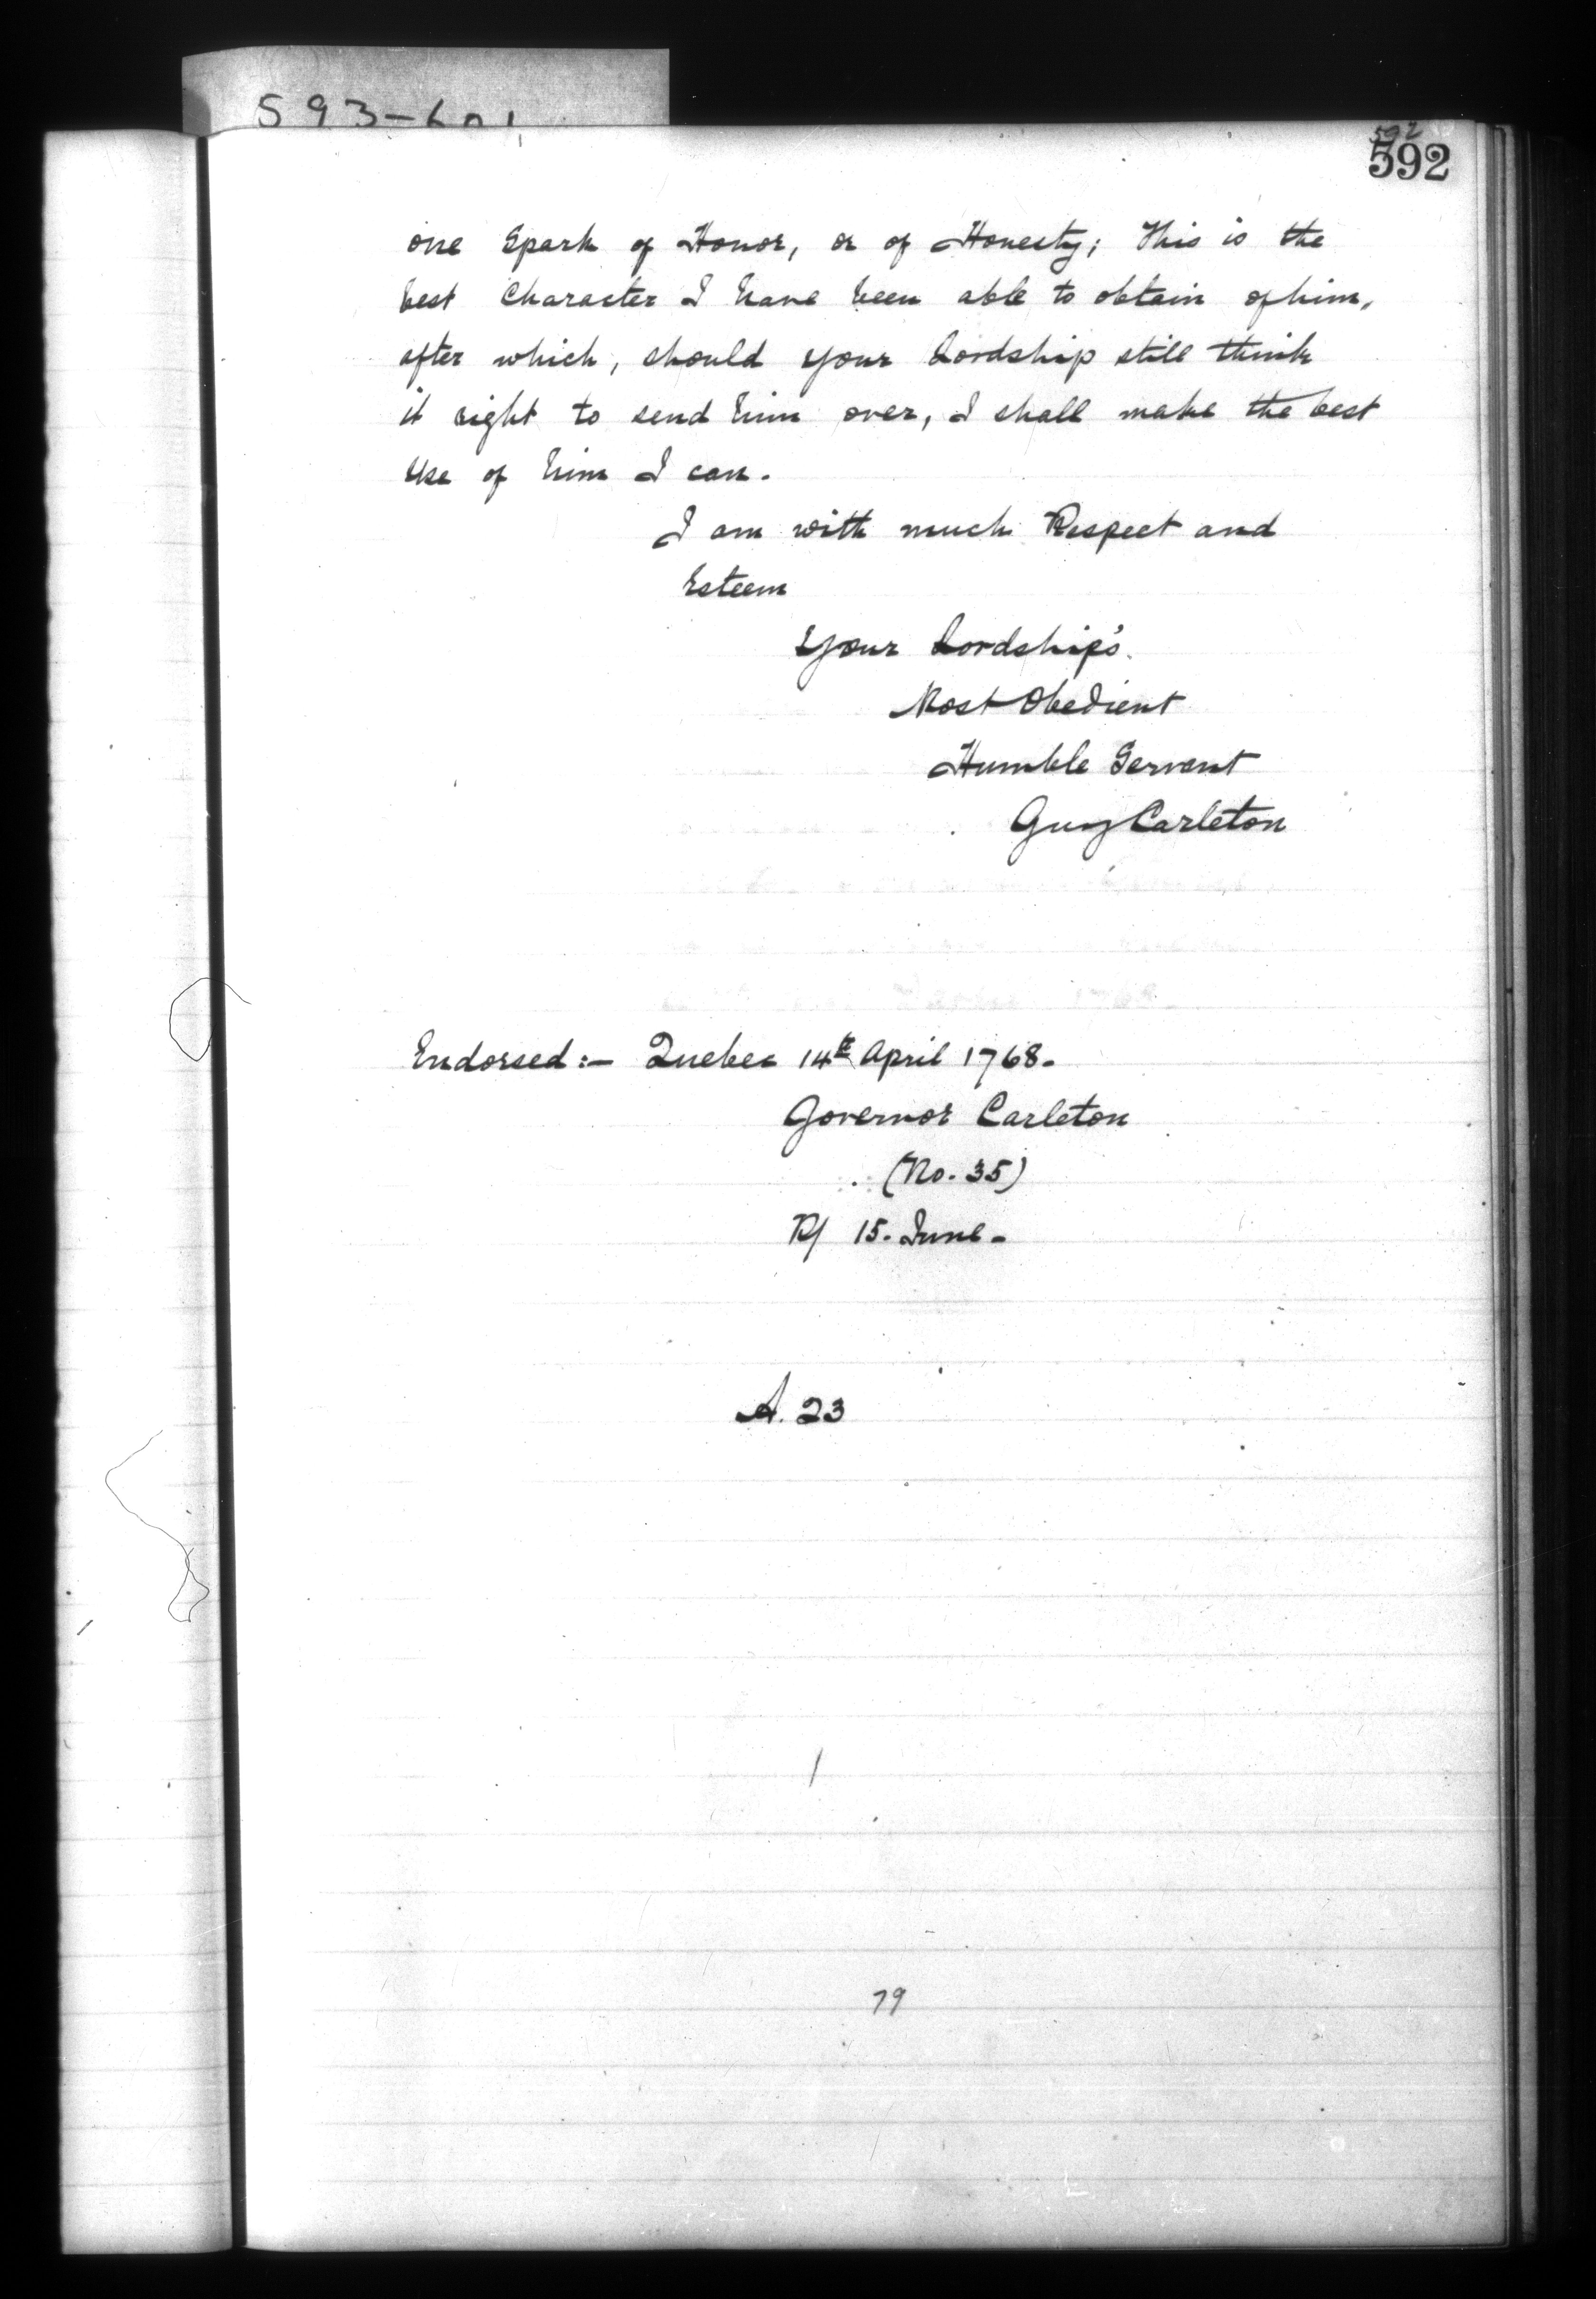 593-601
592
592
one Spark of Honor, or of Honesty; This is the
best Character I have been able to obtain of him,
after which, should your Lordship still think
it right to send him over, I shall make the best
Use of him I can.
I am with much Respect and
Esteem
Your Lordship's
Most Obedient
Humble Servant
Guy Carleton
Endorsed:- Quebec 14th April 1768.
Governor Carleton
(No. 35)
R/ 15. June.
A. 23
79